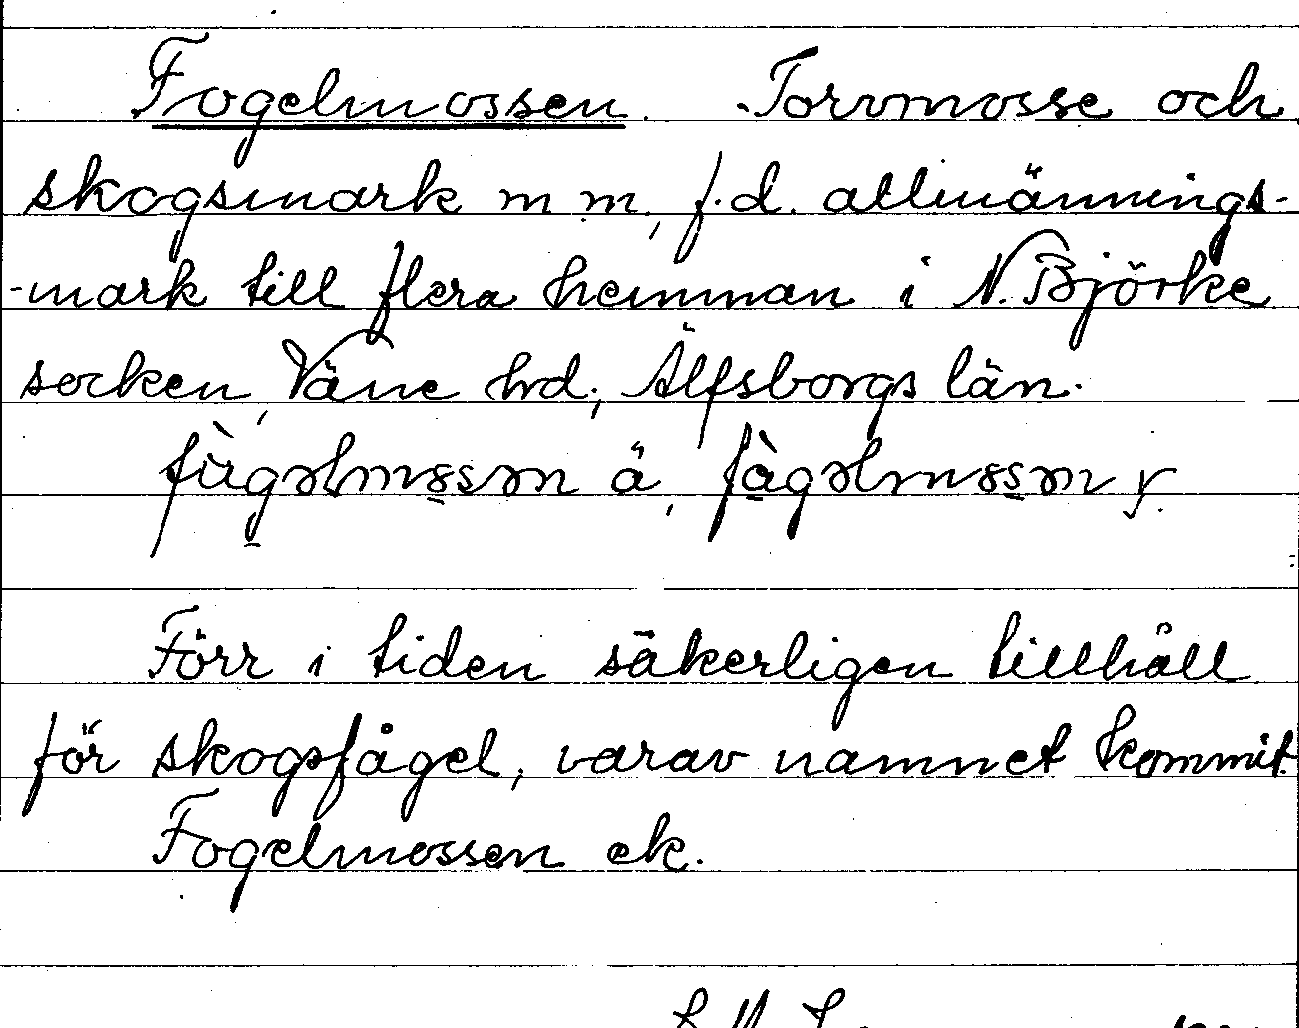 Fogelmossen. Torvmosse och
skogsmark m m, f.d. allmännings-
-mark till flera hemman i N. Björke
socken, Väne hrd; Älfsborgs län.
ä, y.
Förr i tiden säkerligen tillhåll
för skogsfågel, varav namnet kommit.
Fogelmossen ek.